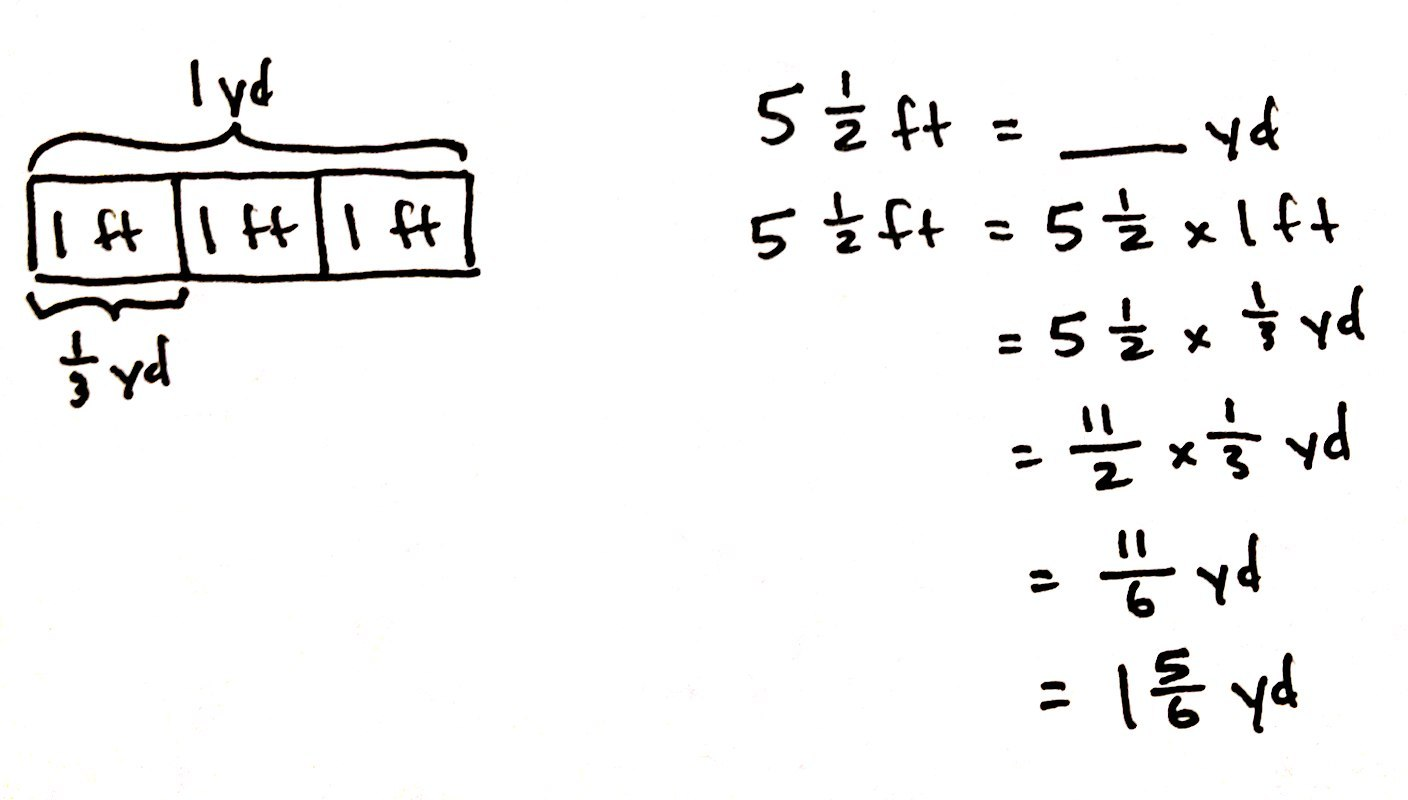 1 yd
1 ft 1 ft 1 ft
1/3 yd
5 1/2 ft = ___ yd
5 1/2 ft = 5 1/2 x 1 ft
= 5 1/2 x 1/3 yd
= 11/2 x 1/3 yd
= 11/6 yd
= 1 5/6 yd